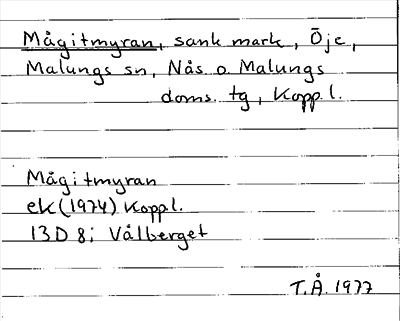 Mågitmyran, sank mark, Öje,
Malungs sn, Nås o. Malungs
doms. tg, Kopp.l.
Mågitmyran
ek (1974) Koppl.
13D 8i Vålberget
T.Å. 1977